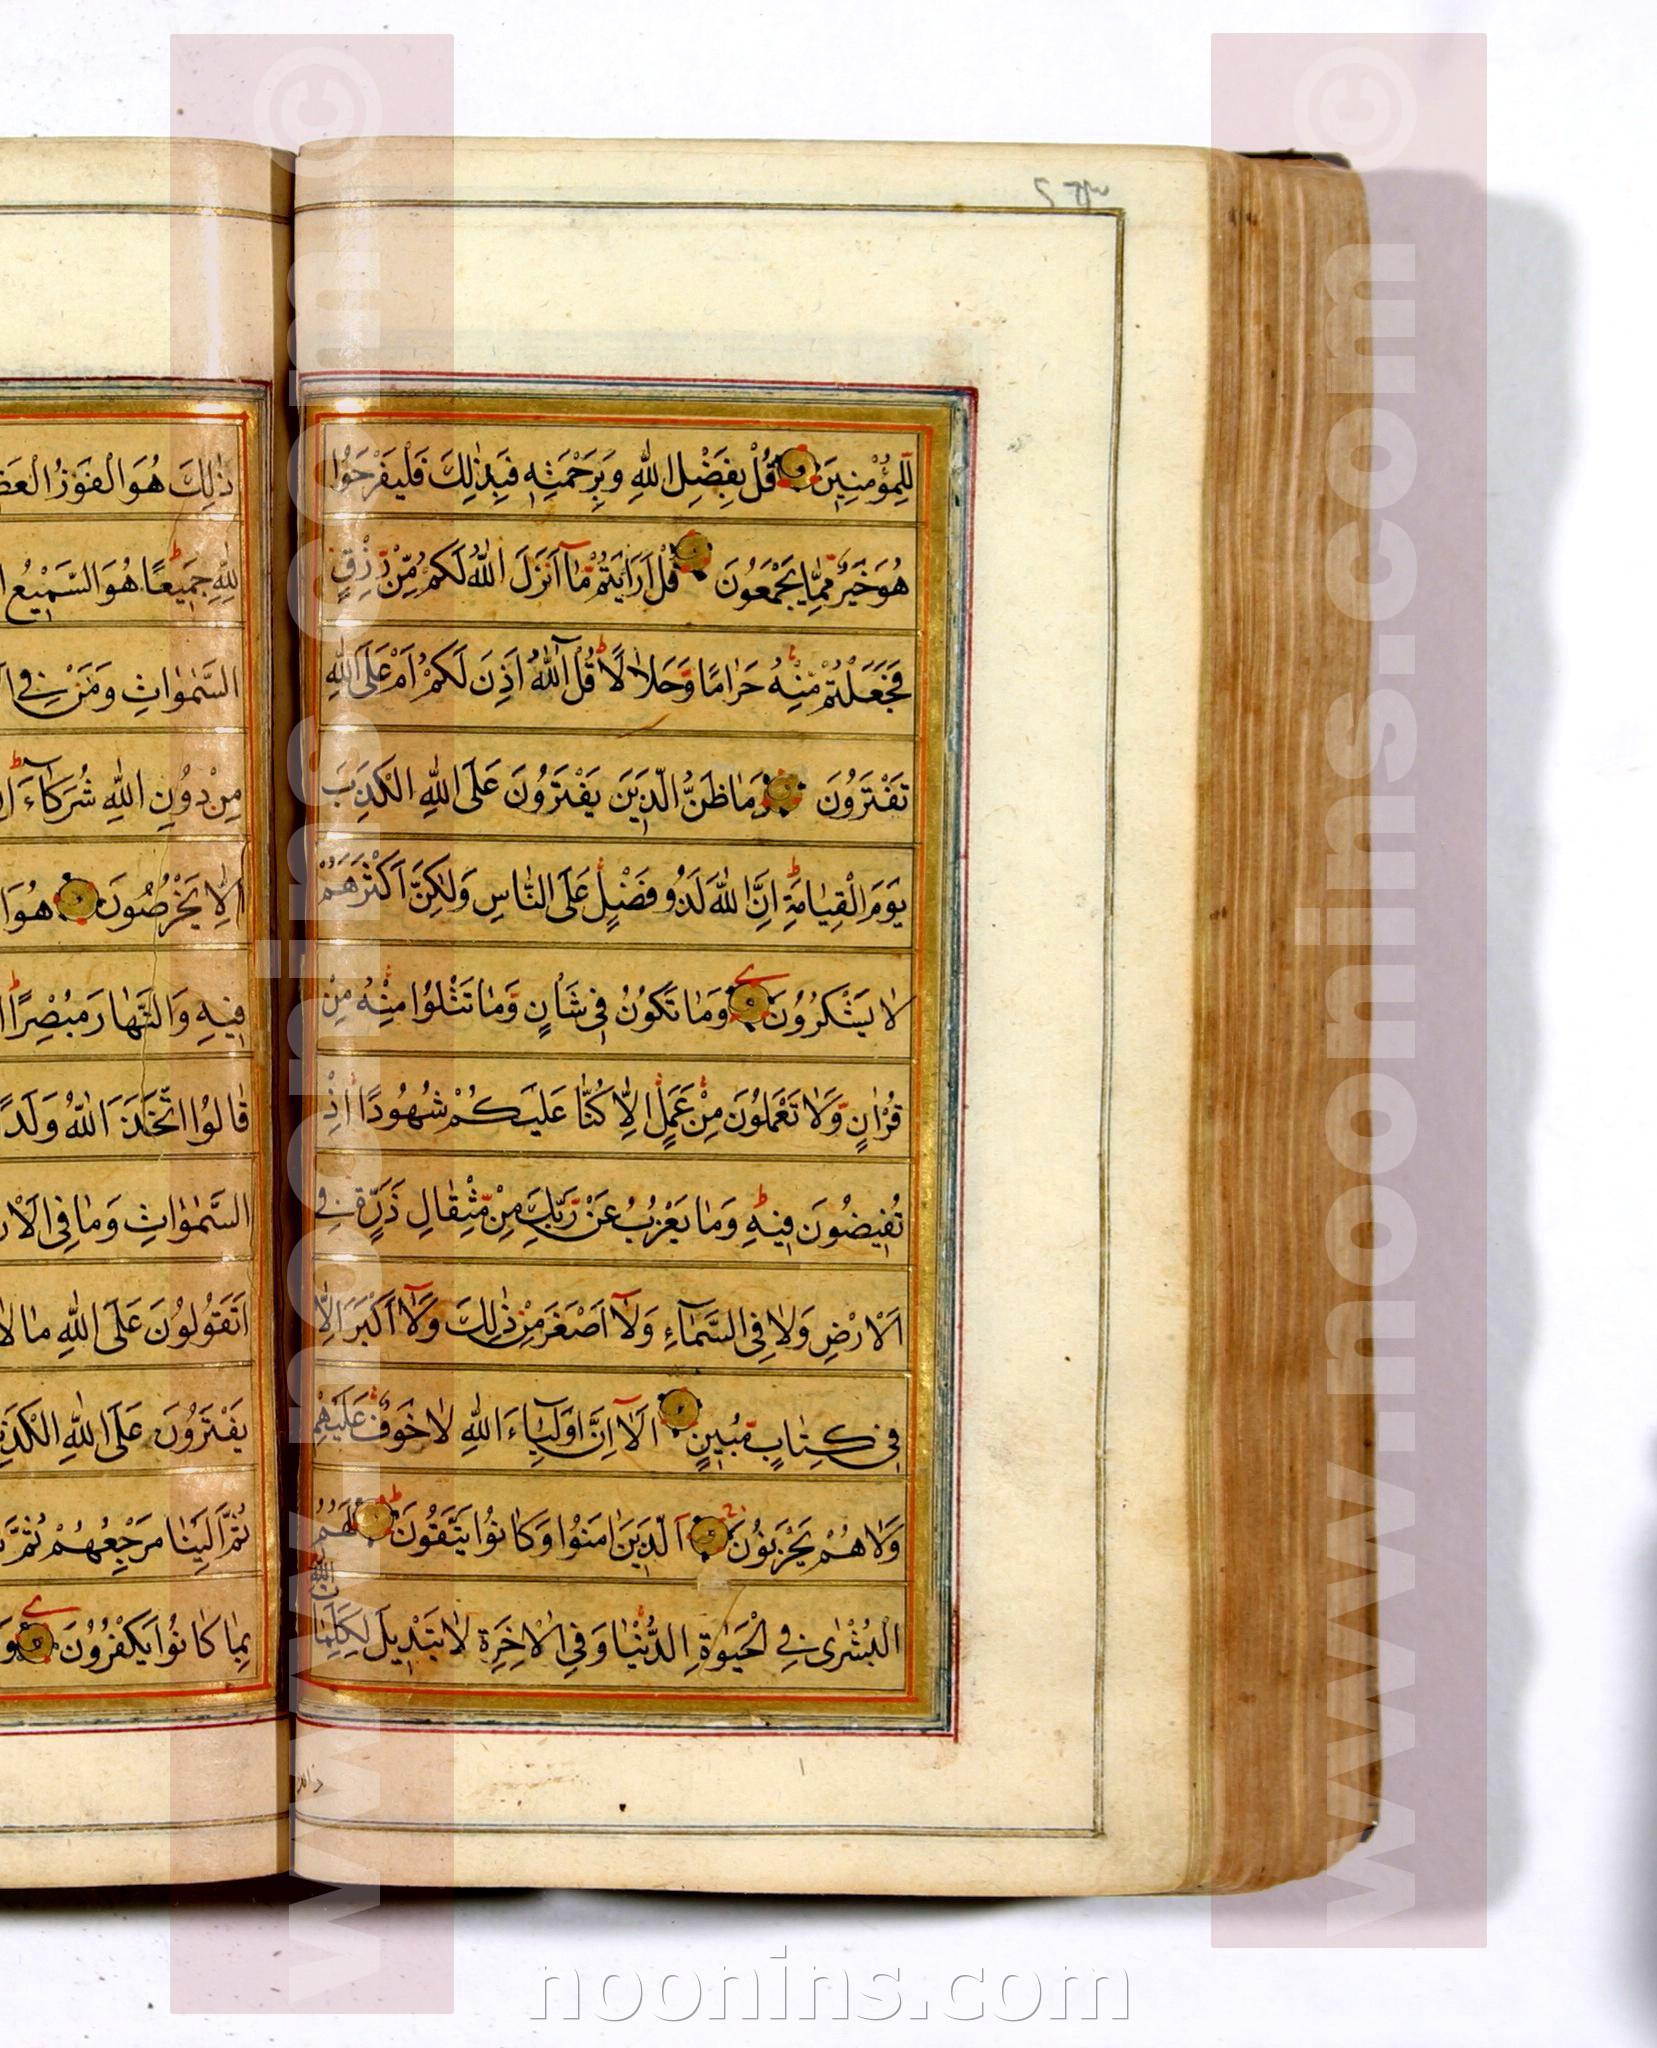 لِّلْمُؤْمِنِينَ قُلْ بِفَضْلِ اللّٰهِ وَبِرَحْمَتِهٖ فَبِذٰلِكَ فَلْيَفْرَحُوا
هُوَ خَيْرٌ مِّمَّا يَجْمَعُونَ قُلْ اَرَاَيْتُمْ مَّاۤ اَنْزَلَ اللّٰهُ لَكُمْ مِّنْ رِّزْقٍ
فَجَعَلْتُمْ مِّنْهُ حَرَامًا وَّحَلَالًا قُلْ آٰللّٰهُ اَذِنَ لَكُمْ اَمْ عَلَى اللّٰهِ
تَفْتَرُونَ وَمَا ظَنُّ الَّذِينَ يَفْتَرُونَ عَلَى اللّٰهِ الْكَذِبَ
يَوْمَ الْقِيَامَةِ اِنَّ اللّٰهَ لَذُو فَضْلٍ عَلَى النَّاسِ وَلٰكِنَّ اَكْثَرَهُمْ
لَا يَشْكُرُونَ وَمَا تَكُونُ فِي شَاْنٍ وَّمَا تَتْلُوا مِنْهُ مِنْ
قُرْاٰنٍ وَّلَا تَعْمَلُونَ مِنْ عَمَلٍ اِلَّا كُنَّا عَلَيْكُمْ شُهُودًا اِذْ
تُفِيضُونَ فِيهِ وَمَا يَعْزُبُ عَنْ رَّبِّكَ مِنْ مِّثْقَالِ ذَرَّةٍ فِي
الْاَرْضِ وَلَا فِي السَّمَاۤءِ وَلَاۤ اَصْغَرَ مِنْ ذٰلِكَ وَلَاۤ اَكْبَرَ اِلَّا
فِي كِتَابٍ مُّبِينٍ اَلَاۤ اِنَّ اَوْلِيَاۤءَ اللّٰهِ لَا خَوْفٌ عَلَيْهِمْ
وَلَا هُمْ يَحْزَنُونَ اَلَّذِينَ اٰمَنُوا وَكَانُوا يَتَّقُونَ لَهُمُ
الْبُشْرٰى فِي الْحَيٰوةِ الدُّنْيَا وَفِي الْاٰخِرَةِ لَا تَبْدِيلَ لِكَلِمَاتِ
اللّٰهِ
ذٰلِكَ هُوَ الْفَوْزُ
لِلّٰهِ جَمِيعًا هُوَ السَّمِيعُ
السَّمٰوَاتِ وَمَنْ فِي
مِنْ دُونِ اللّٰهِ شُرَكَاۤءَ
اِلَّا يَخْرُصُونَ هُوَ
فِيهِ وَالنَّهَارَ مُبْصِرًا
قَالُوا اتَّخَذَ اللّٰهُ وَلَدًا
السَّمٰوَاتِ وَمَا فِي
اَتَقُولُونَ عَلَى اللّٰهِ مَا لَا
يَفْتَرُونَ عَلَى اللّٰهِ
ثُمَّ اِلَيْنَا مَرْجِعُهُمْ ثُمَّ
بِمَا كَانُوا يَكْفُرُونَ
ذالك
www.noonins.com ©
www.noonins.com ©
noonins.com